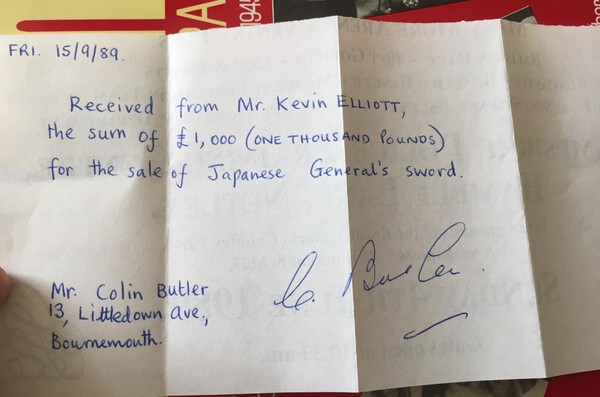 FRI. 15/9/89.
Received from Mr. Kevin ELLIOTT,
the sum of £1,000 (ONE THOUSAND POUNDS)
for the sale of Japanese General's sword.
C. Butler.
Mr. Colin Butler
13, Littledown Ave.,
Bournemouth.
1945